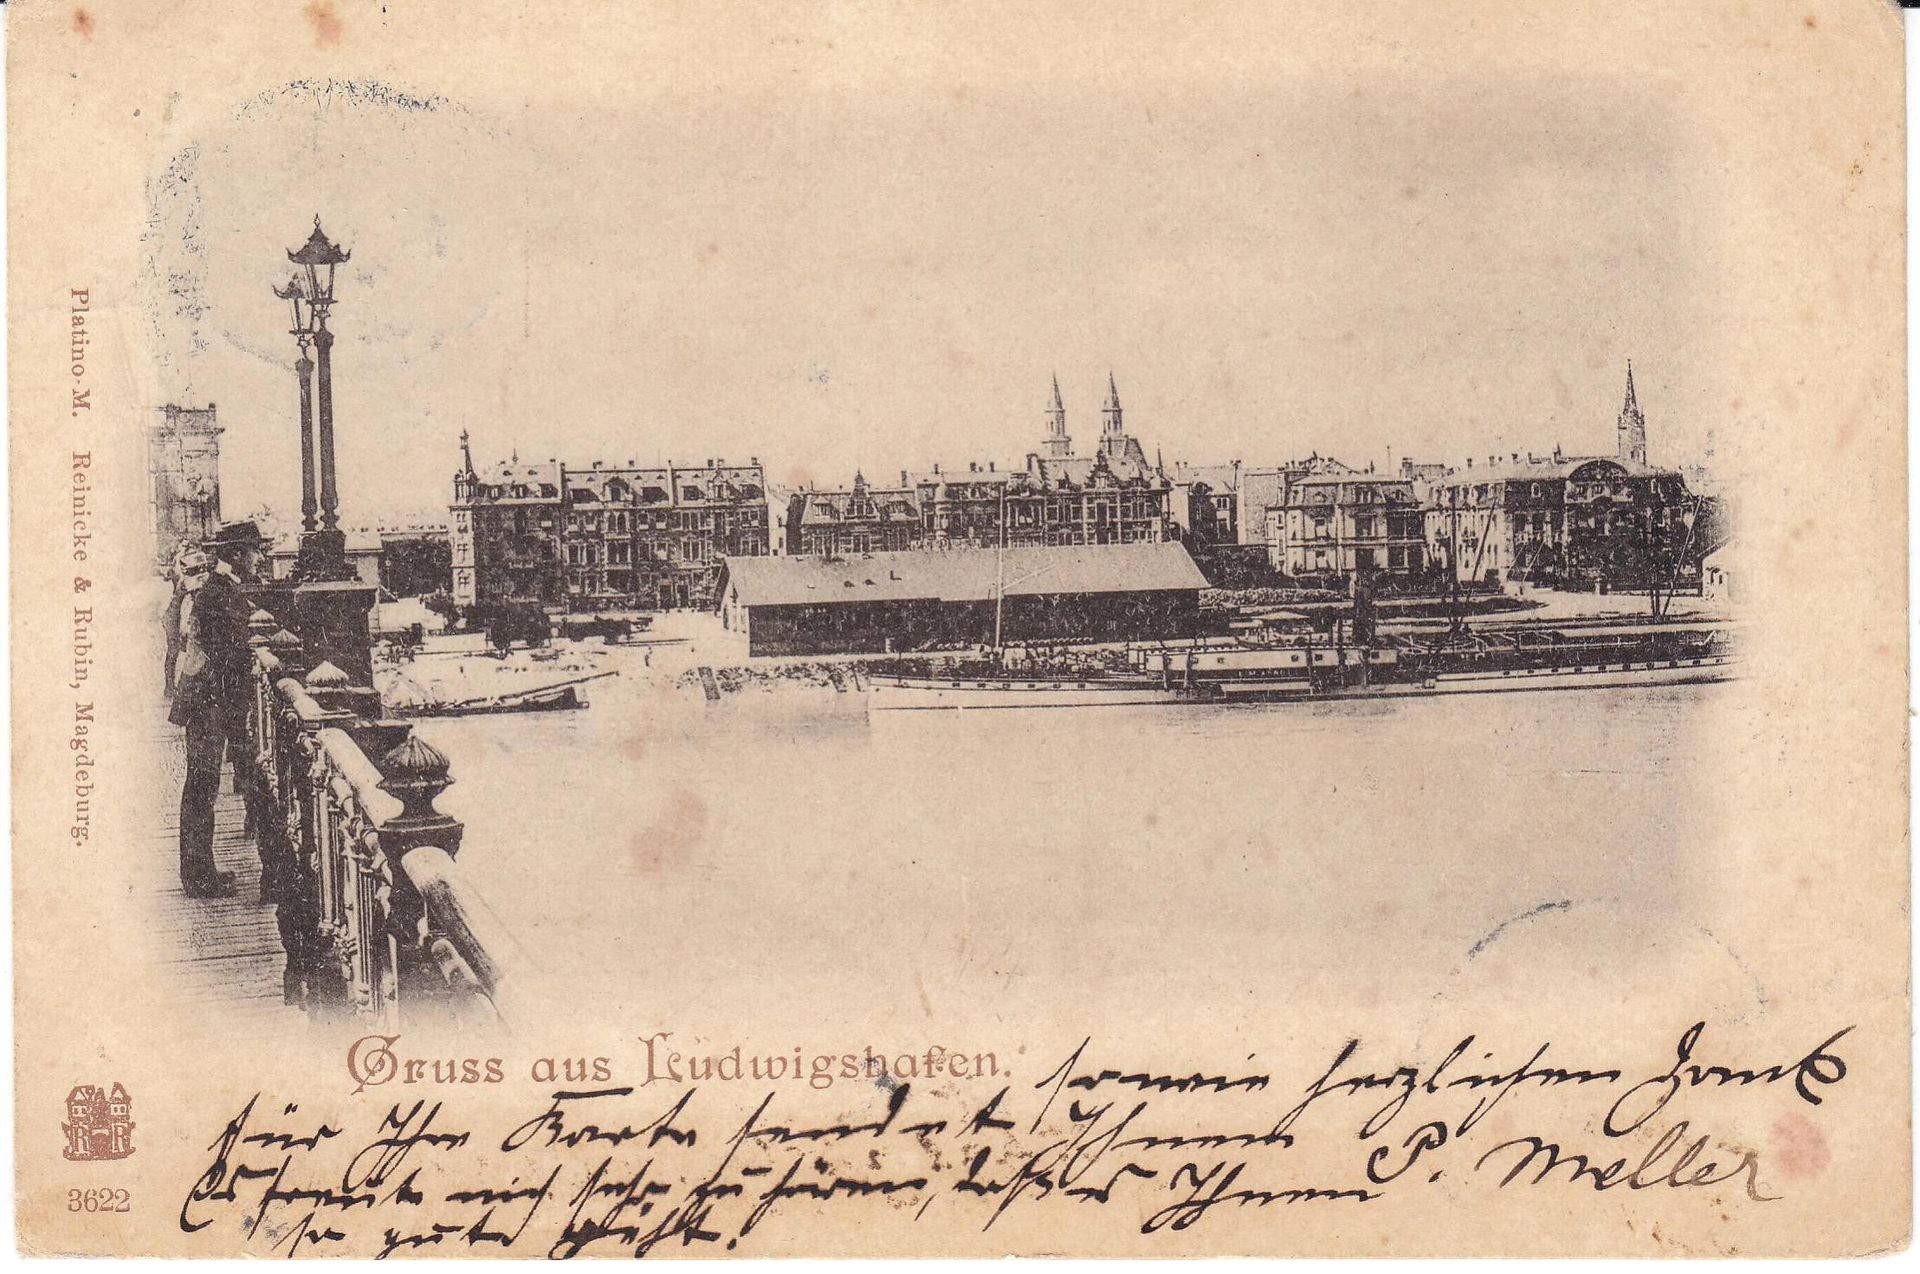 Platino-M. Reinicke & Rubin, Magdeburg.
Gruss aus Ludwigshafen.
sowie herzlichen Dank
für Ihre Karte sendet Ihnen P. Meller
Es freute mich sehr zu hören, daß es Ihnen
so gute geht.
R R
3622